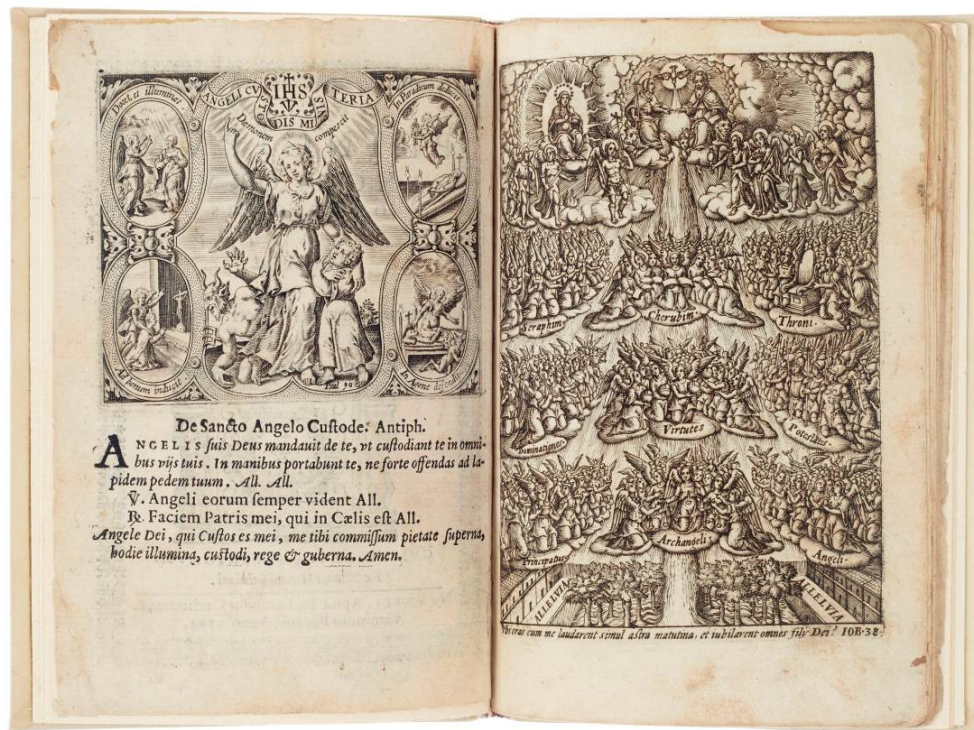 Docet, et illuminat
ANGELI CVSTODIS MINISTERIA
IHS
In Paradisum deducit
Dæmonem compescit
Ad bonum indicit
In Agone defendit
De Sancto Angelo Cuſtode. Antiph.
ANGELIS ſuis Deus mandauit de te, vt cuſtodiant te in omni-
bus vijs tuis. In manibus portabunt te, ne forte offendas ad la-
pidem pedem tuum. All. All.
℣. Angeli eorum ſemper vident All.
℟. Faciem Patris mei, qui in Cælis eſt All.
Angele Dei, qui Cuſtos es mei, me tibi commiſſum pietate ſuperna,
hodie illumina, cuſtodi, rege & guberna. Amen.
Seraphim
Cherubim
Throni
Dominationes
Virtutes
Potestates
Principatus
Archangeli
Angeli
ALLELVIA
ALLELVIA
Vbi eras cum me laudarent simul astra matutina, et iubilarent omnes filij Dei? IOB·38·